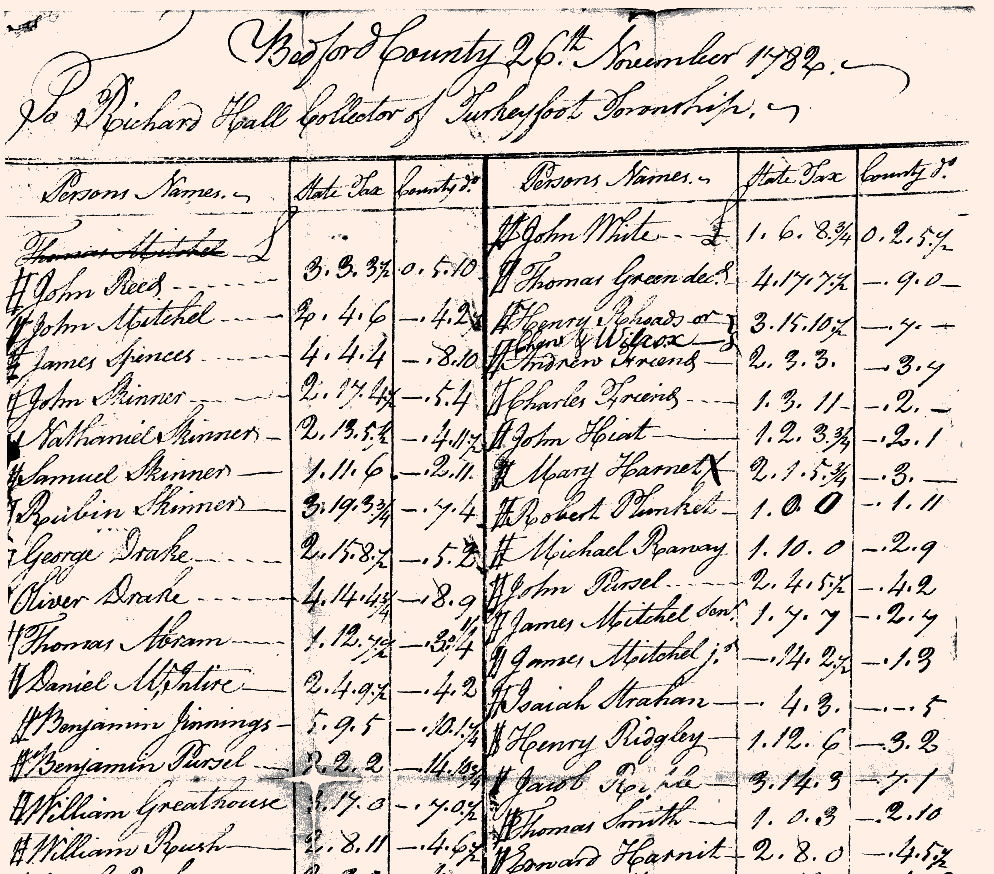 Bedford County 26th November 1782.
To Richard Hall Collector of Turkeyfoot Township.
Persons Names. State Tax County do
Thomas Mitchel £
John Reed 3.3.3½ 0.5.10
John Mitchel 2.4.6 —.4.2
James Spences 4.4.4 —.8.10
John Skinner 2.17.4½ —.5.4
Nathaniel Skinner 2.13.5½ —.4.11½
Samuel Skinner 1.11.6 —.2.11.
Reubin Skinner 3.19.3¾ —.7.4
George Drake 2.15.8½ —.5.2
Oliver Drake 4.14.4¾ —.8.9
Thomas Abram 1.12.7½
Daniel McIntire 2.4.9½ —.4.2
Benjamin Jinnings 5.9.5 —.10.1¼
Benjamin Pursel 2.2.2
William Greathouse 17.0 —.7.0½
William Rush 2.8.11 —.4.6½
Persons Names. State Tax County do
John White £ 1.6.8¾ 0.2.5½
Thomas Green decd 4.17.7½ —.9.0—
Henry Rhoads or 3.15.10½ —.7.—
Wilcox
Andrew Friend 2.3.3. —.3.7
Charles Friend 1.3.11— —.2.—
John Hiat 1.2.3¾ —.2.1
Mary Harnet X 2.1.5¾ —.3.—
Robert Plunket 1.0.0 —.1.11
Michael Raway 1.10.0 —.2.9
John Pursel 2.4.5½ —.4.2
James Mitchel Senr 1.7.7 —.2.7
James Mitchel jr —.14.2½ —.1.3
Isaiah Strahan —.4.3. —.—.5
Henry Ridgley 1.12.6 —.3.2
Jacob 3.14.3 —.7.1
Thomas Smith 1.0.3 —.2.10
Edward Harnit 2.8.0 —.4.5½